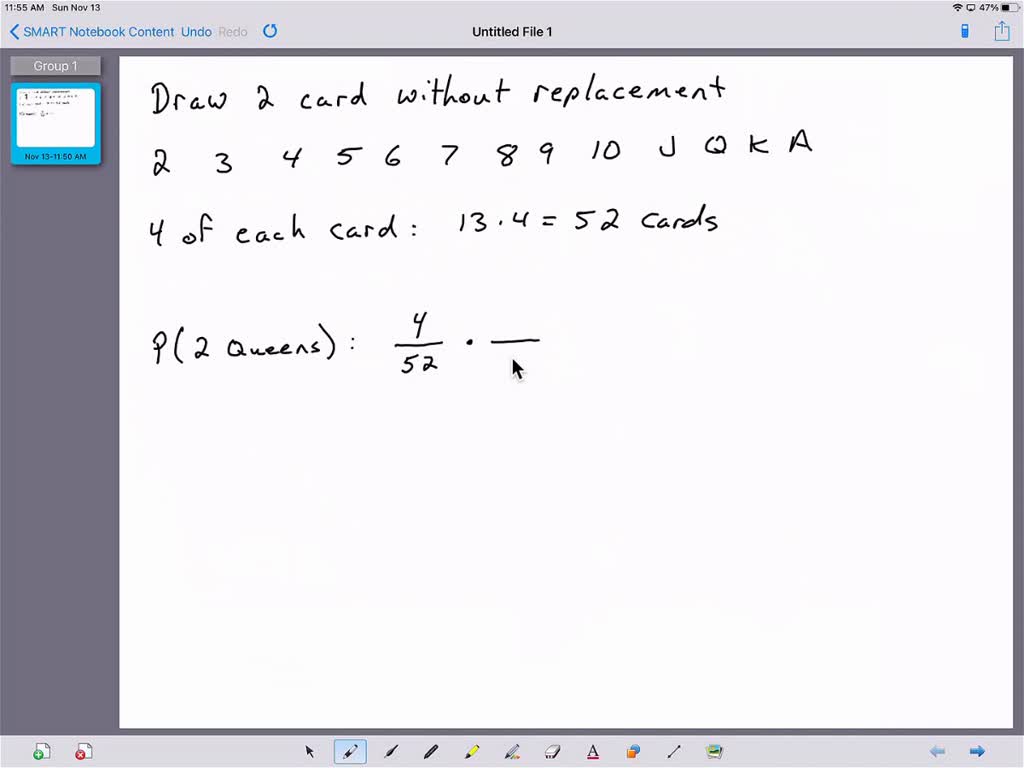 11:55 AM Sun Nov 13 47%
SMART Notebook Content Undo Redo Untitled File 1
Group 1
Nov 13-11:50 AM
Draw 2 card without replacement
2 3 4 5 6 7 8 9 10 J Q K A
4 of each card: 13 · 4 = 52 cards
P(2 Queens): 4/52 · —
A